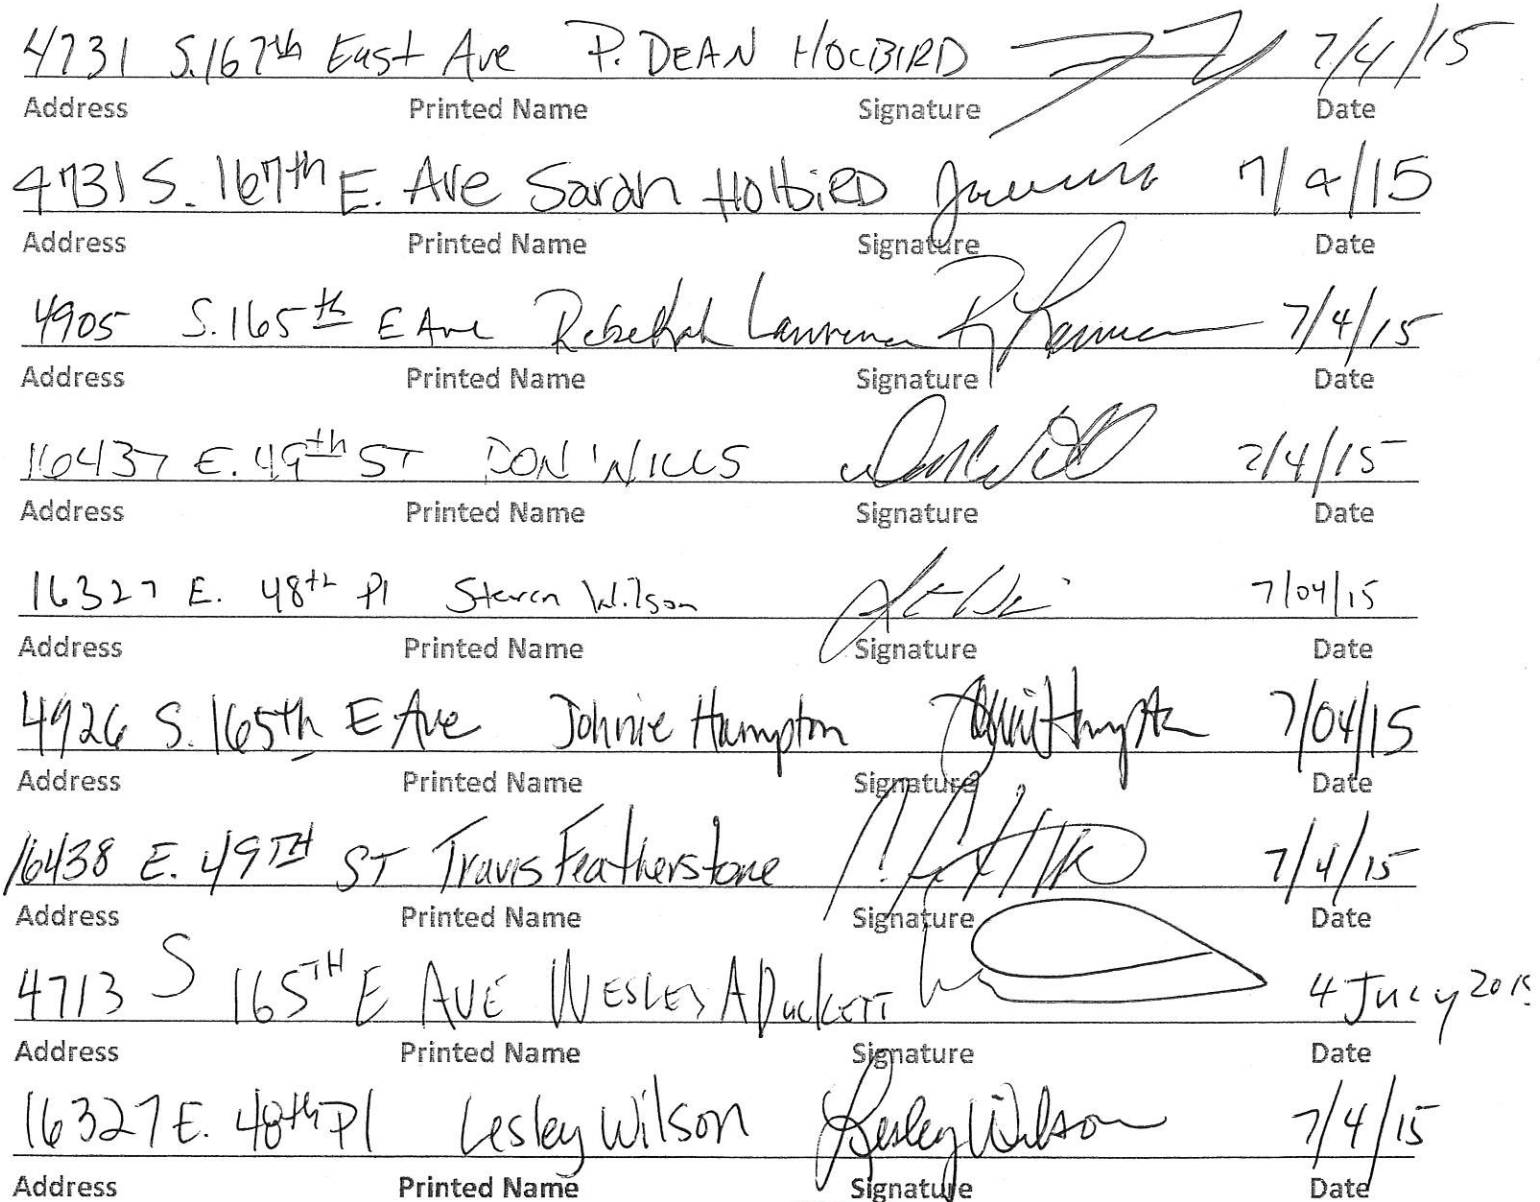 4731 S. 167th East Ave P. DEAN HOLBIRD 7/4/15
Address Printed Name Signature Date
4731 S. 167th E. Ave Sarah HolbiRD 7/4/15
Address Printed Name Signature Date
4905 S. 165th E Ave Rebekah Lawrence R Lawrence 7/4/15
Address Printed Name Signature Date
16437 E. 49th ST DON WILLS Don Wills 7/4/15
Address Printed Name Signature Date
16327 E. 48th Pl Steven Wilson 7/04/15
Address Printed Name Signature Date
4926 S. 165th E Ave Johnie Hampton Johnie Hampton 7/04/15
Address Printed Name Signature Date
16438 E. 49TH ST Travis Featherstone 7/4/15
Address Printed Name Signature Date
4713 S 165TH E AVE WESLEY A DuckETT 4 JULY 2015
Address Printed Name Signature Date
16327 E. 48th Pl Lesley Wilson Lesley Wilson 7/4/15
Address Printed Name Signature Date